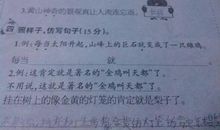 3.黄山神奇的景观真让人流连忘返。
四 照样子,仿写句子(15分)。
1.例:每当太阳升起,山峰上的巨石就变成了一只雄鸡。
每当 就
2.例:这肯定就是著名的“金鸡叫天都”了。
不用说,这就是著名的“金鸡叫天都”了。
挂在树上的像金黄的灯笼的肯定就是梨子了。